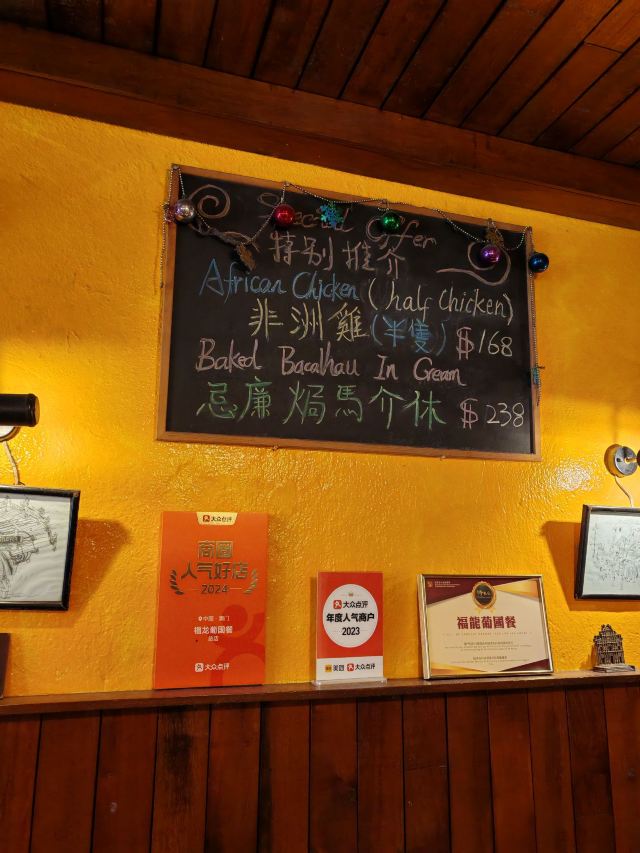 Special Offer
特别推介
African Chicken (half Chicken)
非洲雞(半隻) $168
Baked Bacalhau In Cream
忌廉焗馬介休 $238
大众点评
商圈
人气好店
2024
中国·澳门
福龙葡国餐
总店
大众点评
大众点评
年度人气商户
2023
美团 大众点评
福龍葡國餐